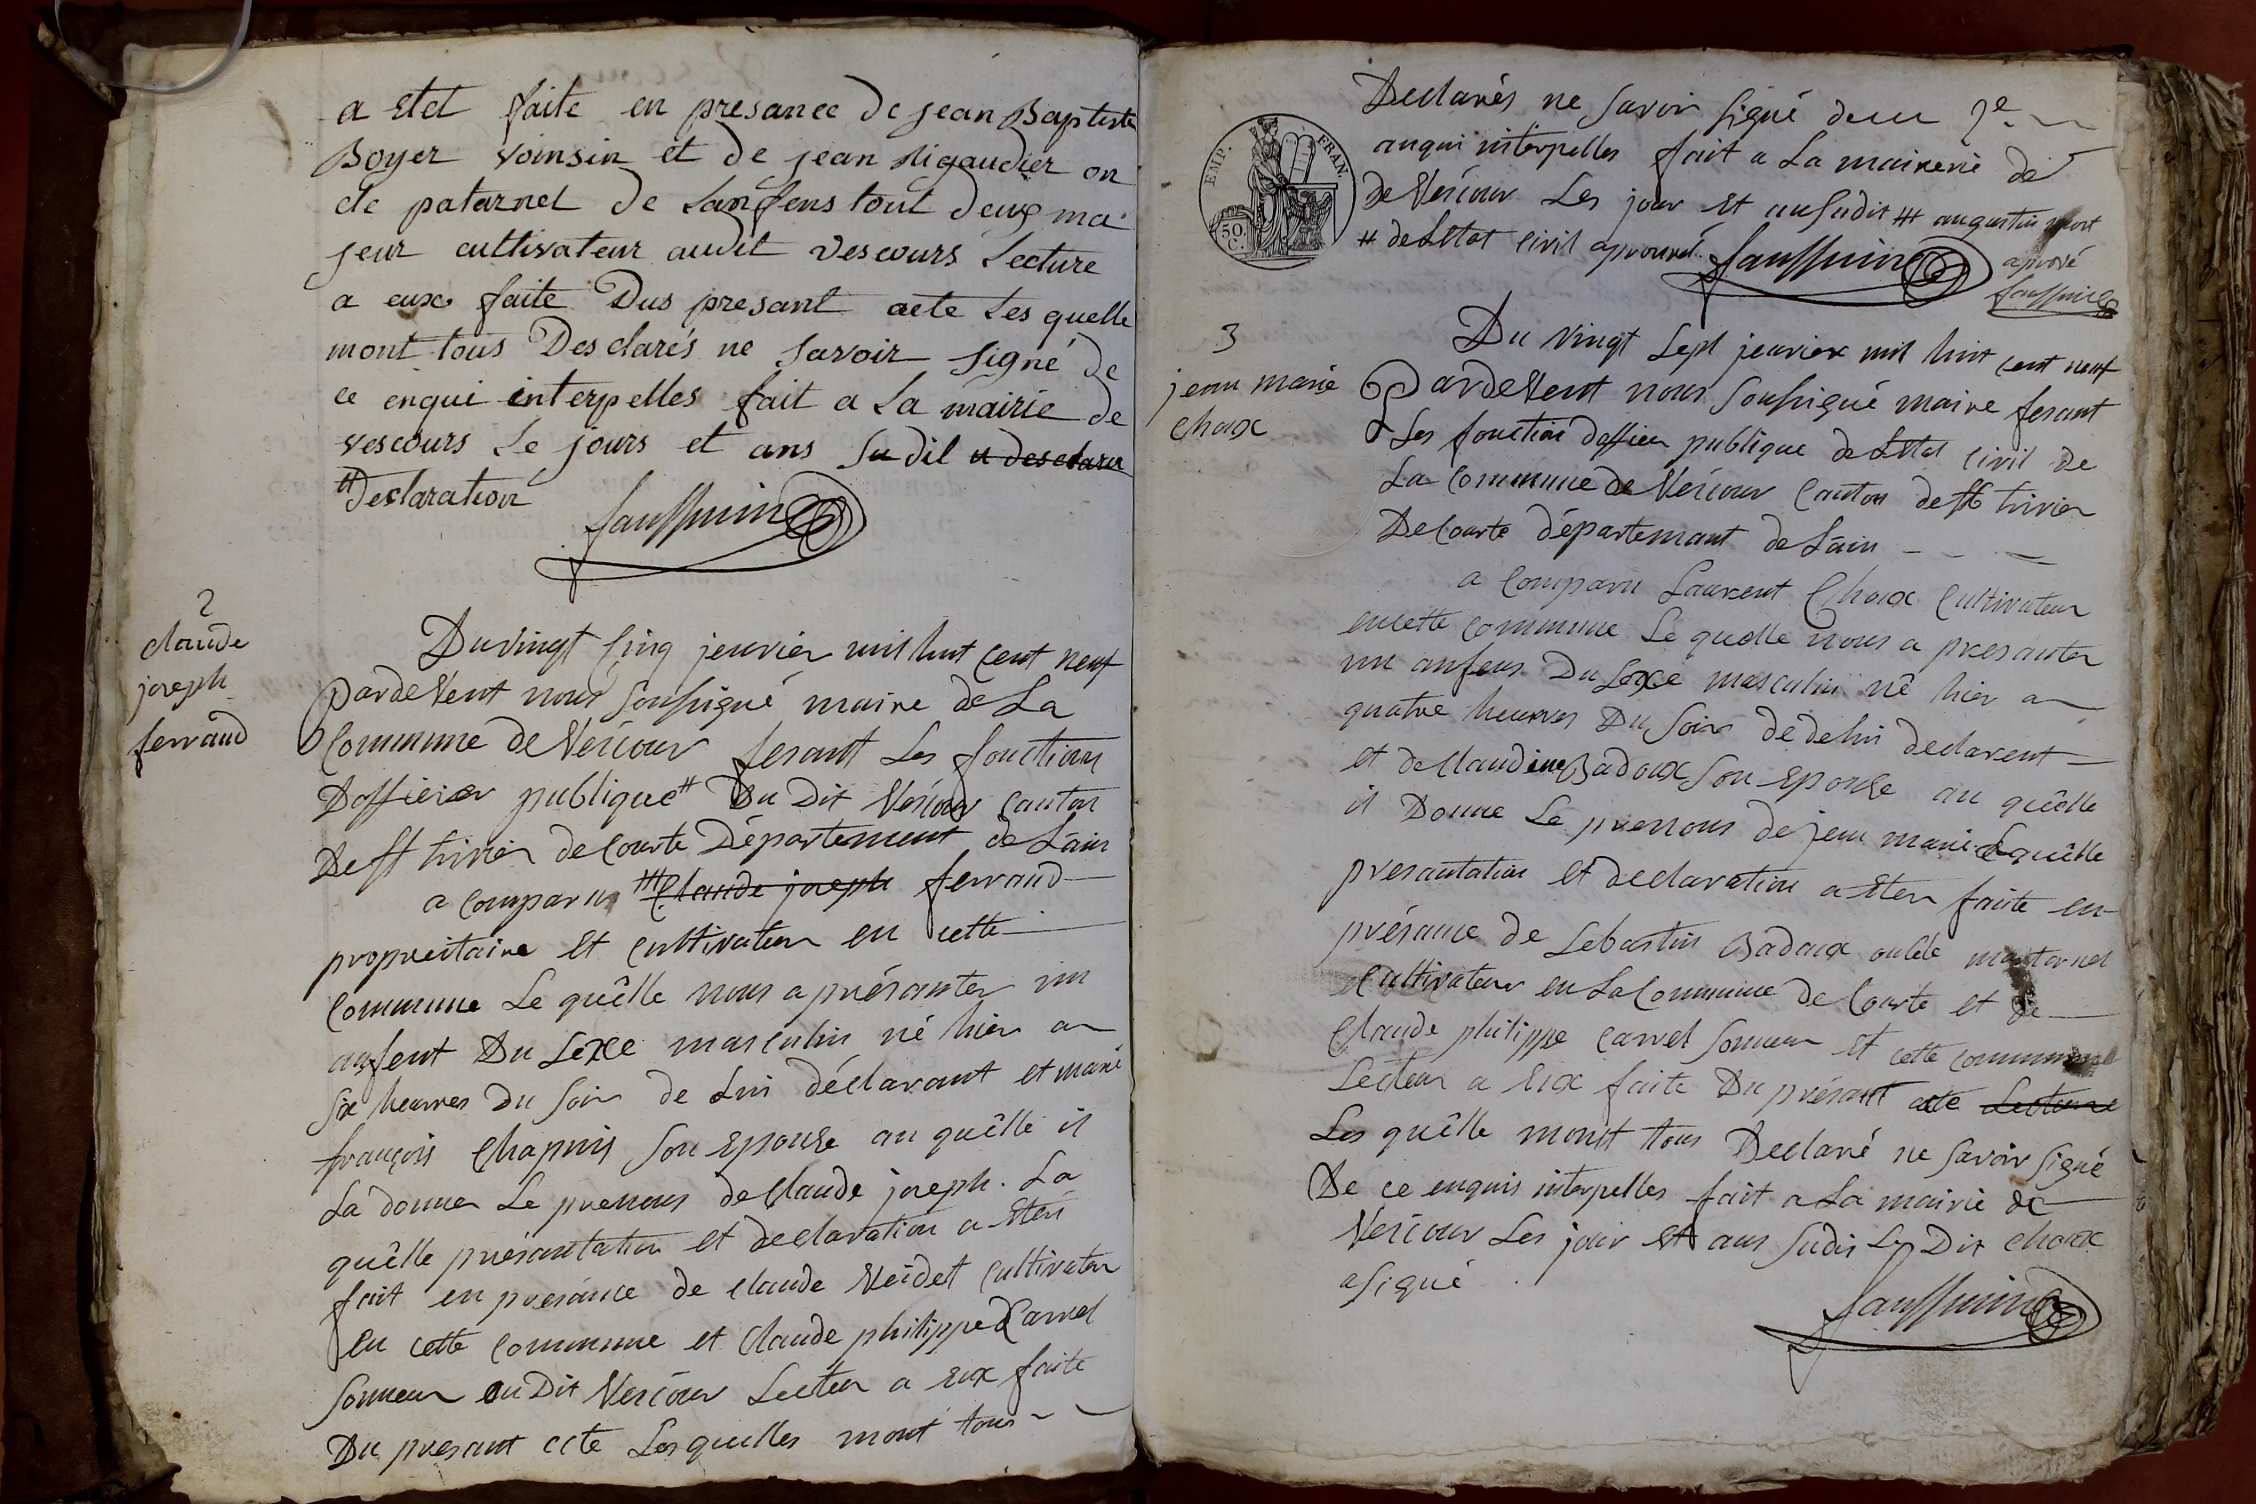 a etet faite en presance de jean Baptiste
Boyer voinsin et de jean Rigaudier on
cle patarnel de Lanfens tout deux ma
jeur cultivateur audit vescours Lecture
a eux faite Dus presant acte Les quelle
mont tous Desclarés ne savoir signé de
ce enqui interpelles fait a La mairie de
vescours Le jours et ans su dit
# Desclaration
2
claude
joseph
ferraud
Du vingt Cinq jenvier mil huit Cent neuf
pardeVent nous soussigné maire de La
Commune de Vescour fesant Les fonction
Doffiecier publique # Du Dit Vescour Canton
De st trivier de Courte Département de Lain
a Comparu Claude joseph ferraud
propreitaire et Cultivateur en cette
Commune Le quêlle nous a présanter un
anfent Du Sexe masculin né hier a
six heurres Du soir de Lui déclarant et marie
françois Chapuis son epouse au quêlle il
La donner Le prenous de Claude joseph. La
quêlle présantation et declaration a Eteri
fait en presance de claude Veidet Cultivateur
en cette Commune et Claude philippe Carrel
sonneur au Dit Vescour Lecteur a eux faite
Du presant acte Lesquelles mont tous
Declarés ne savoir signé
anqui interpelles fait a La mairerie de
de Vescour Les jour et ansudit # augustin mort
# de Lettat Civil aprouvé. aprové
EMP. FRAN.
50. C.
3
jean marie
Choix
Du Vingt Sept jenvier mil huit Cent neuf
PardeVent nous Soussigné maire fesant
Les fonction doffieier publique de Lettat Civil de
La Commune de Vescour Canton de st trivier
De Courte département de Lain
a Comparu Laurent Choix Cultivateur
encette Commune Le quelle nous a presanter
un anfens Du Sexe masculin né hier a
quatre heurres Du Soir de deluu declarent
et de Claudine Badoux Son Epouse au quêlle
il Donne Le prenous de jean marie Lquêlle
presantation et declaration a Eteri faite en
présance de Sebastin Badoux oncle maternel
Cultivateur en La Commune de Courte et de
Claude philippe Carrel Sonneur et cette Commune
Lecteur a Eux faite Du présant acte Lecture
Les quêlle mont tous Declaré ne savoir signé
De ce enquis interpelles fait a La mairie de
Vescour Les jour et ans sudis Le Dit choix
a signé